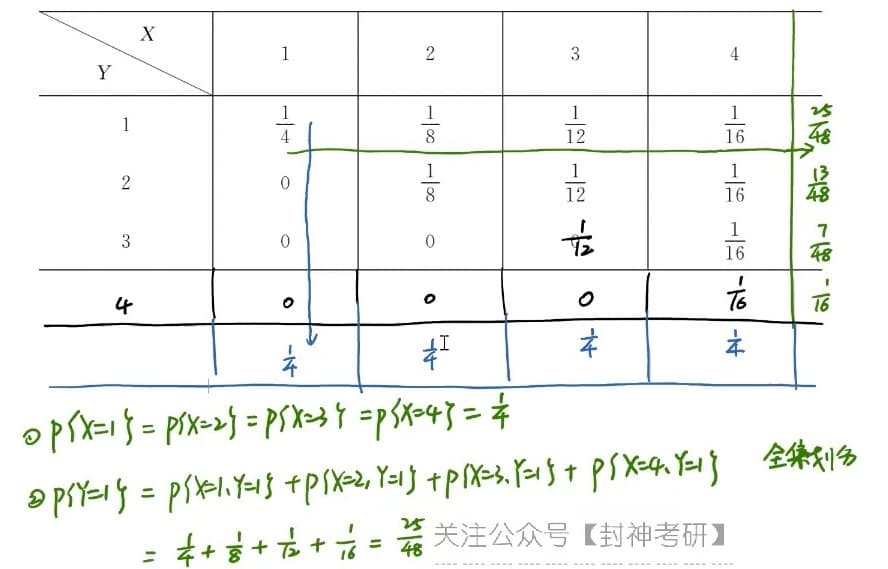 X
Y 1 2 3 4
1 1/4 1/8 1/12 1/16 25/48
2 0 1/8 1/12 1/16 13/48
3 0 0 1/12 1/16 7/48
4 0 0 0 1/16 1/16
1/4 1/4 1/4 1/4
① P{X=1} = P{X=2} = P{X=3} = P{X=4} = 1/4
② P{Y=1} = P{X=1、Y=1} + P{X=2, Y=1} + P{X=3、Y=1} + P{X=4、Y=1} 全集划分
= 1/4 + 1/8 + 1/12 + 1/16 = 25/48 关注公众号【封神考研】